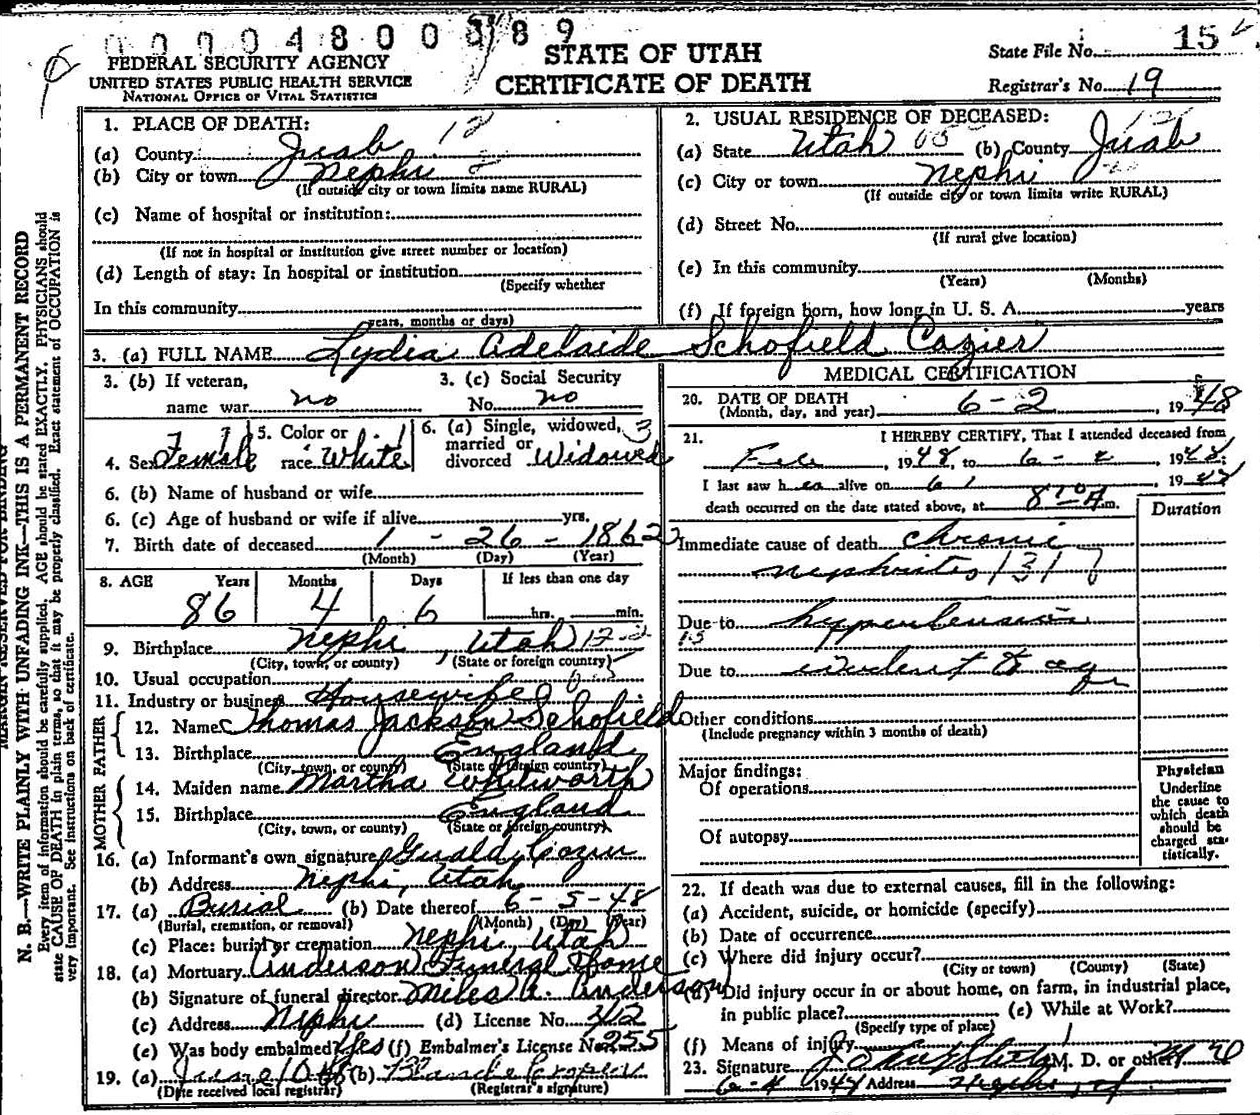 0000480089
FEDERAL SECURITY AGENCY
UNITED STATES PUBLIC HEALTH SERVICE
NATIONAL OFFICE OF VITAL STATISTICS
STATE OF UTAH
CERTIFICATE OF DEATH
State File No. 15
Registrar's No. 19
N. B.—WRITE PLAINLY WITH UNFADING INK—THIS IS A PERMANENT RECORD
Every item of information should be carefully supplied. AGE should be stated EXACTLY. PHYSICIANS should
state CAUSE OF DEATH in plain terms, so that it may be properly classified. Exact statement of OCCUPATION is
very important. See instructions on back of certificate.
1. PLACE OF DEATH: 12
(a) County Juab
(b) City or town Nephi
(If outside city or town limits name RURAL)
(c) Name of hospital or institution:
(If not in hospital or institution give street number or location)
(d) Length of stay: In hospital or institution
(Specify whether
In this community
years, months or days)
2. USUAL RESIDENCE OF DECEASED:
(a) State Utah (b) County Juab
(c) City or town Nephi
(If outside city or town limits write RURAL)
(d) Street No.
(If rural give location)
(e) In this community
(Years) (Months)
(f) If foreign born, how long in U. S. A. years
3. (a) FULL NAME Lydia Adelaide Schofield Cazier
3. (b) If veteran, name war no
3. (c) Social Security No. no
4. Sex Female
5. Color or race White
6. (a) Single, widowed, married or divorced Widowed 3
6. (b) Name of husband or wife
6. (c) Age of husband or wife if alive yrs.
7. Birth date of deceased 1 - 26 - 1862
(Month) (Day) (Year)
8. AGE Years Months Days If less than one day
86 4 6 hrs. min.
9. Birthplace Nephi, Utah
(City, town, or county) (State or foreign country)
10. Usual occupation
11. Industry or business Housewife
FATHER
12. Name Thomas Jackson Schofield
13. Birthplace England
(City, town, or county) (State or foreign country)
MOTHER
14. Maiden name Martha Whitworth
15. Birthplace England
(City, town, or county) (State or foreign country)
16. (a) Informant's own signature
(b) Address Nephi, Utah
17. (a) Burial (b) Date thereof 6 - 5 - 48
(Burial, cremation, or removal) (Month) (Day) (Year)
(c) Place: burial or cremation Nephi, Utah
18. (a) Mortuary Anderson Funeral Home
(b) Signature of funeral director Miles A. Anderson
(c) Address Nephi (d) License No. 342
(e) Was body embalmed? Yes (f) Embalmer's License No. 255
19. (a) June (b) Blanche
(Date received local registrar) (Registrar's signature)
MEDICAL CERTIFICATION
20. DATE OF DEATH
(Month, day, and year) 6-2, 1948
21. I HEREBY CERTIFY, That I attended deceased from
, 1948, to 6-2, 1948;
I last saw h alive on 6 1 19
death occurred on the date stated above, at m.
Duration
Immediate cause of death chronic
nephritis 131
Due to hypertension
Due to incident to age
Other conditions
(Include pregnancy within 3 months of death)
Major findings:
Of operations
Of autopsy
Physician
Underline
the cause to
which death
should be
charged sta-
tistically.
22. If death was due to external causes, fill in the following:
(a) Accident, suicide, or homicide (specify)
(b) Date of occurrence
(c) Where did injury occur?
(City or town) (County) (State)
(d) Did injury occur in or about home, on farm, in industrial place,
in public place? (e) While at Work?
(Specify type of place)
(f) Means of injury
23. Signature M. D. or other
6-4 19 Address Nephi